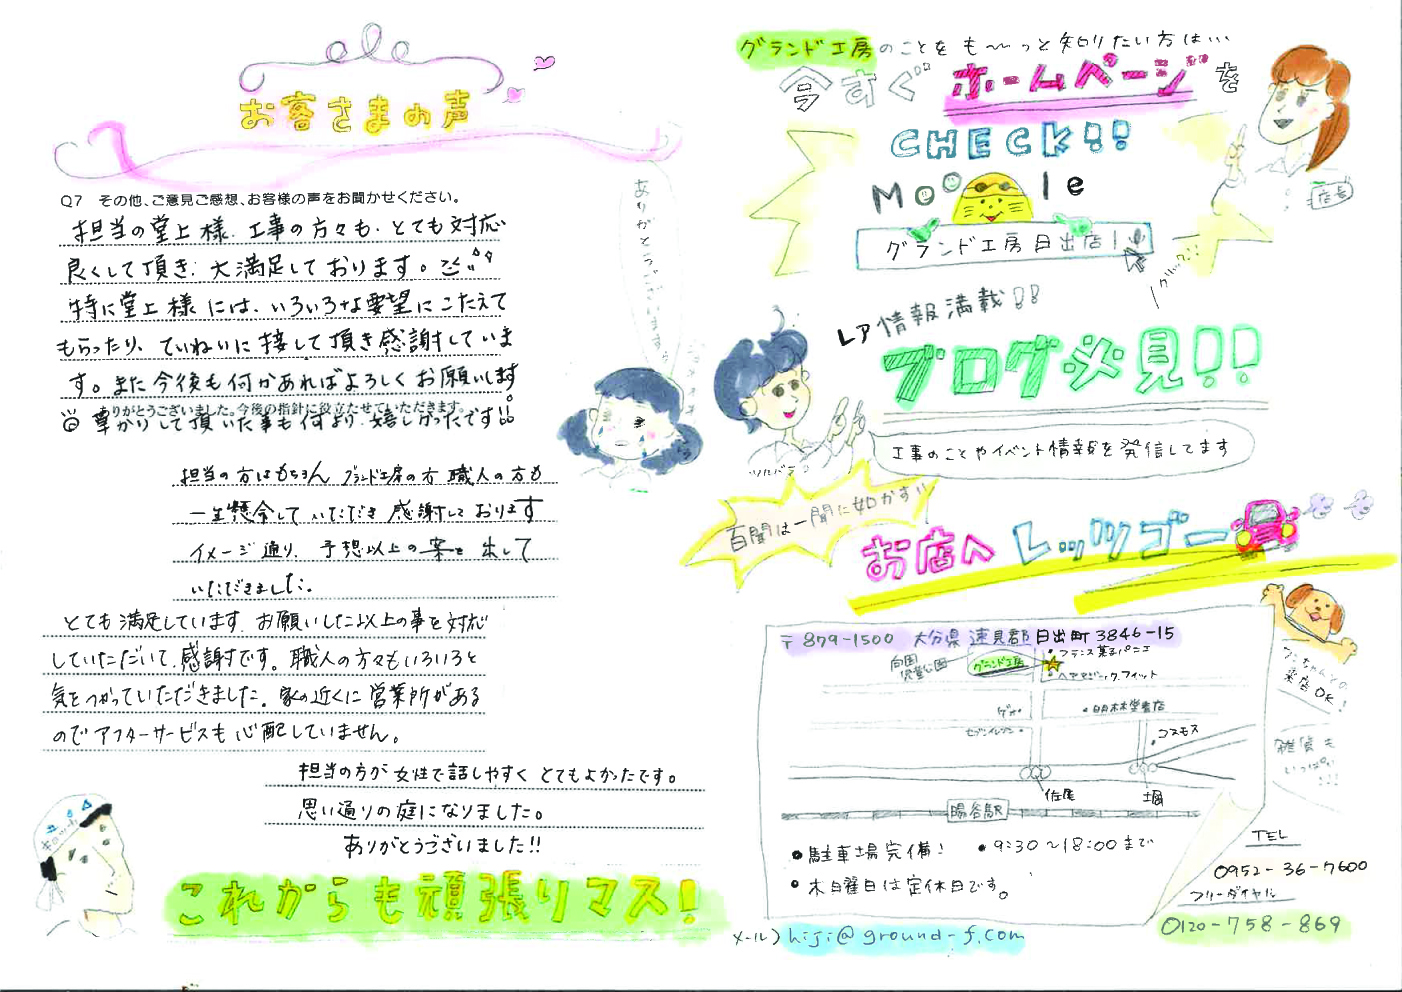 お客さまの声
Q7 その他、ご意見ご感想、お客様の声をお聞かせください。
担当の堂上様、工事の方々も、とても対応
良くして頂き、大満足しております。
特に堂上様には、いろいろな要望にこたえて
もらったり、ていねいに接して頂き感謝していま
す。また今後も何かあればよろしくお願いします。
ありがとうございました。今後の指針に役立たせていただきます。
草かりして頂いた事も何より嬉しかったです!!
ありがとうございますぅ
担当の方はもちろん グランド工房の方 職人の方も
一生懸命して いただき 感謝して おります
イメージ通り、予想以上の案を出して
いただきました。
とても満足しています。お願いした以上の事を対応
していただいて、感謝です。職人の方々もいろいろと
気をつかっていただきました。家の近くに営業所がある
のでアフターサービスも心配していません。
担当の方が女性で話しやすく とてもよかったです。
思い通りの庭になりました。
ありがとうございました!!
これからも頑張りマス!
グランド工房のことをも〜っと知りたい方は…
今すぐホームページを
CHECK!!
店長
Moo le
グランド工房日出店
レア情報満載!!
ブログ必見!!
工事のことやイベント情報を発信してます
百聞は一聞に如かず!!
お店へレッツゴー
〒879-1500 大分県 速見郡 日出町 3846-15
グランド工房
フランス菓子パニエ
ヘアマジック.フィット
明林堂書店
セブンイレブン
コスモス
佐尾
堀
陽谷駅
ワンちゃんとの
来店OK!
雑貨も
いっぱい
駐車場完備!
9:30〜18:00まで
木曜日は定休日です。
TEL
0952-36-7600
フリーダイヤル
0120-758-869
メール) hiji@ground-f.com